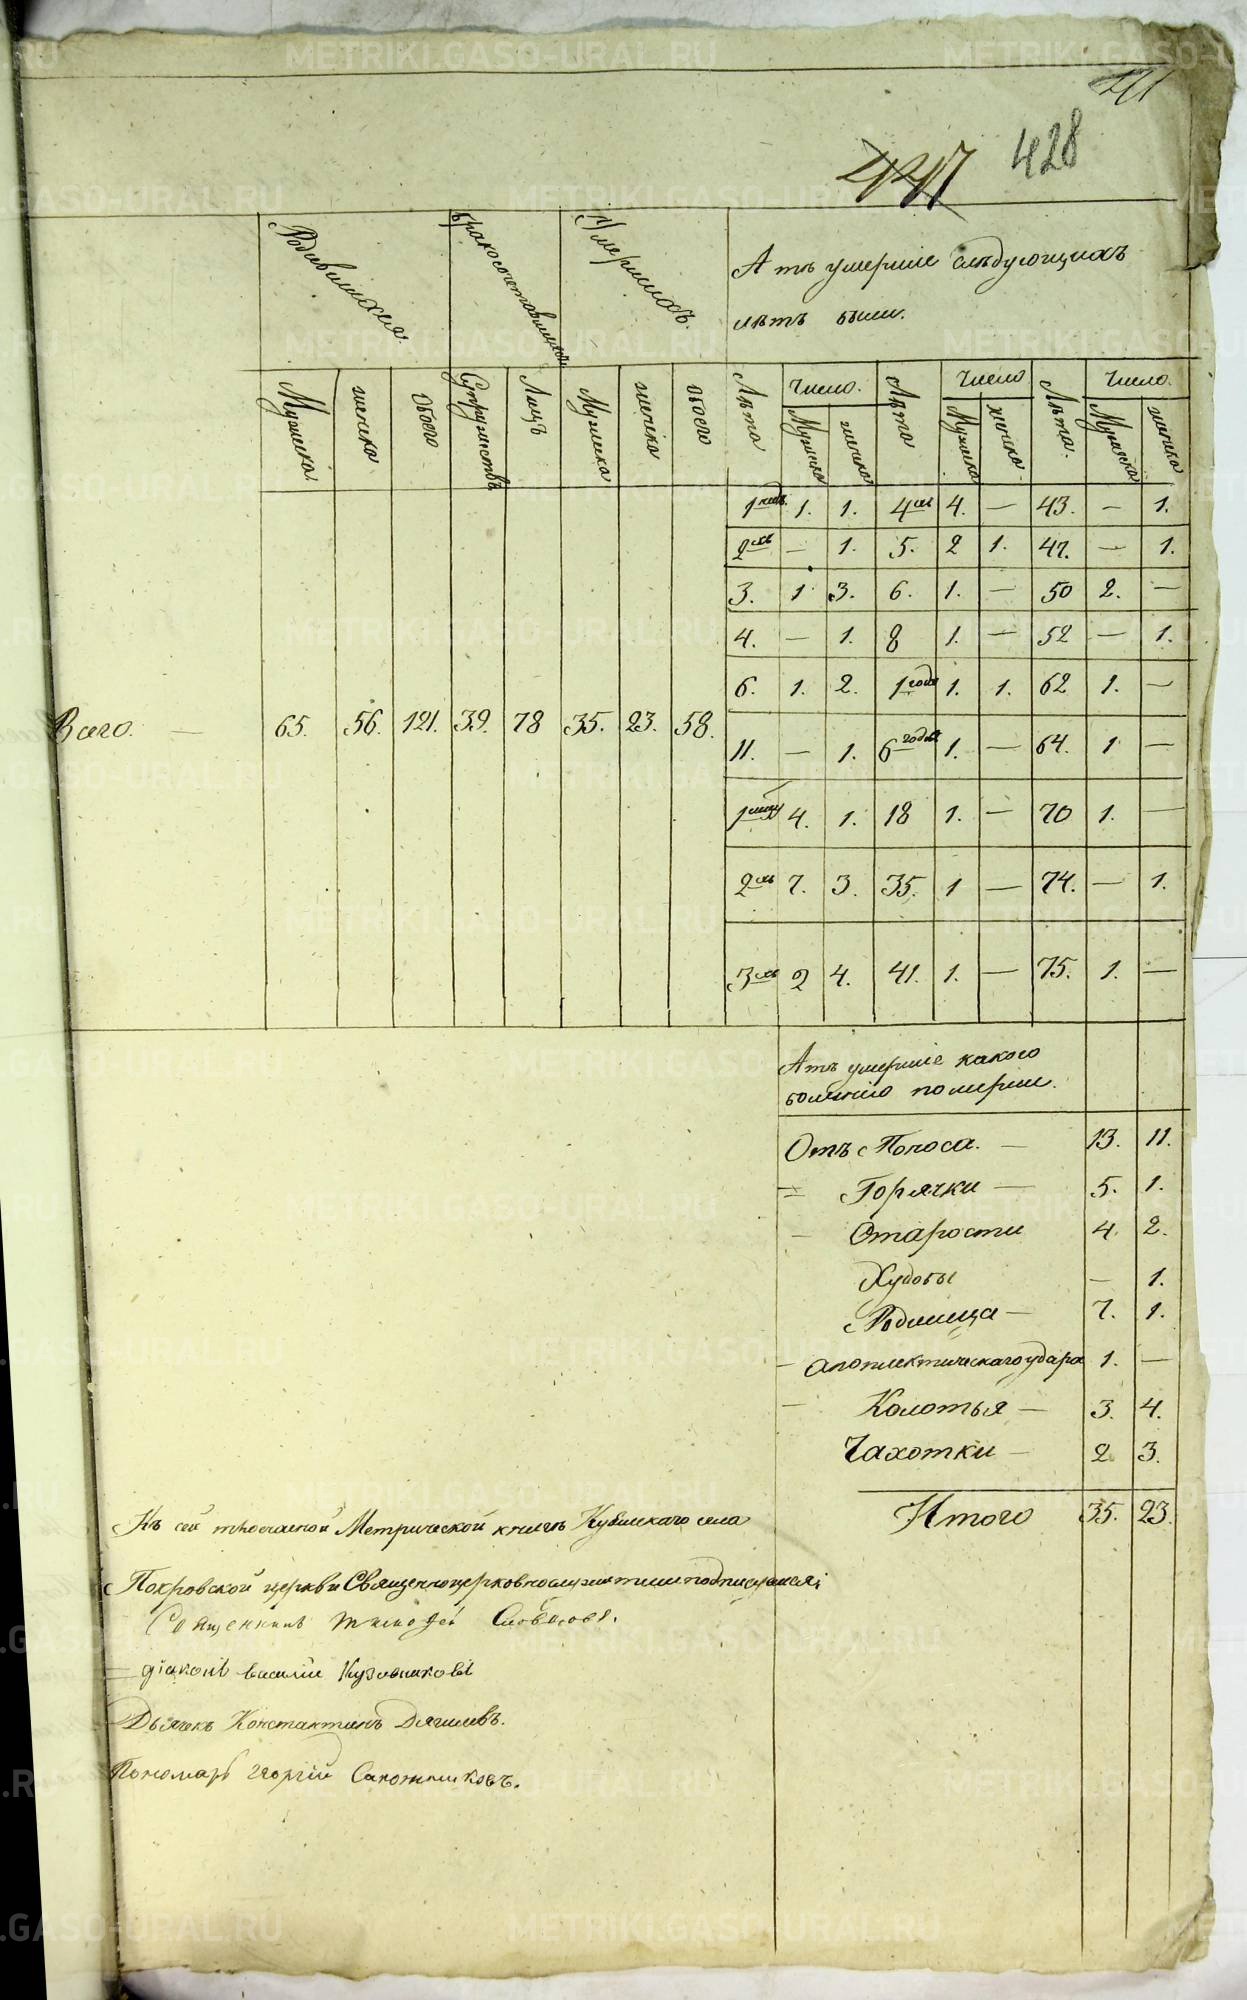 428
447
Родившихся.
Бракосочетавшихся
Умершихъ.
А тѣ умершіе слѣдующихъ
лѣтъ были.
Мужеска. женска обоего Супружествъ Лицъ Мужеска женска обоего Лѣта Число. Лѣта Число Лѣта. Число.
Мужеска женска Мужеска женска. Мужеска женска
1 1. 1. 4 4. — 43. — 1.
2 — 1. 5. 2 1. 47. — 1.
3. 1 3. 6. 1. — 50 2. —
4. — 1. 8 1. — 52 — 1.
6. 1. 2. 1 года 1. 1. 62 1. —
Всего. — 65. 56. 121. 39. 78 35. 23. 58.
11. — 1. 6 годов 1. — 64. 1 —
1 4. 1. 18 1. — 70 1. —
2 7. 3. 35. 1 — 74. — 1.
3 2 4. 41. 1. — 75. 1. —
А тѣ умершіе какого
болѣзнію померли.
Отъ Поноса. — 13. 11.
= Горячки — 5. 1.
— Старости 4 2.
Худобы — 1.
Родимца — 7. 1.
— апоплектическаго удара 1. —
— Колотья — 3. 4.
Чахотки — 2 3.
Итого 35. 23.
Къ сей тросчастной Метрической книгѣ села
Покровской церкви Священноцерковнослужители подписались:
Священникъ Тимофей
= діаконъ Василій Кузовниковъ
Дьячекъ Константинъ Дягилевъ.
Пономарь Георгій Сапожниковъ.
METRIKI.GASO-URAL.RU